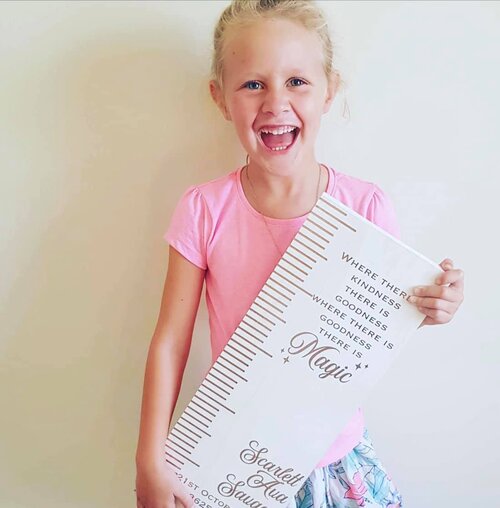 WHERE THERE
KINDNESS
THERE IS
GOODNESS
WHERE THERE IS
GOODNESS
THERE IS
Magic
Scarlett
Ava
21ST